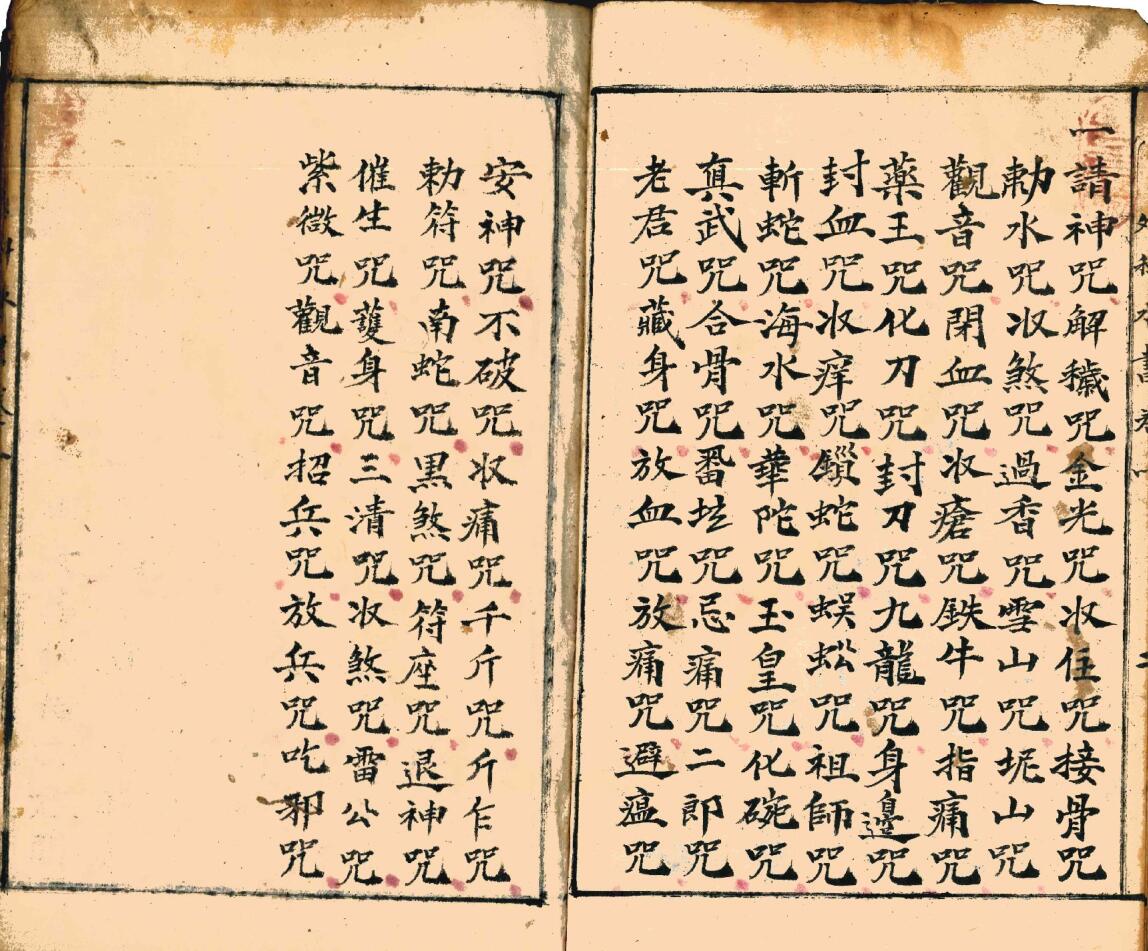 一請神咒解穢咒金光咒收住咒接骨咒
勅水咒收煞咒過香咒雪山咒坭山咒
觀音咒閉血咒收瘡咒鉄牛咒指痛咒
藥王咒化刀咒封刀咒九龍咒身邊咒
封血咒收痒咒鎖蛇咒蜈蚣咒祖師咒
斬蛇咒海水咒華陀咒玉皇咒化碗咒
真武咒合骨咒番坛咒忌痛咒二郎咒
老君咒藏身咒放血咒放痛咒避瘟咒
安神咒不破咒收痛咒千斤咒斤乍咒
勅符咒南蛇咒黑煞咒符座咒退神咒
催生咒護身咒三清咒收煞咒雷公咒
紫微咒觀音咒招兵咒放兵咒吃邪咒